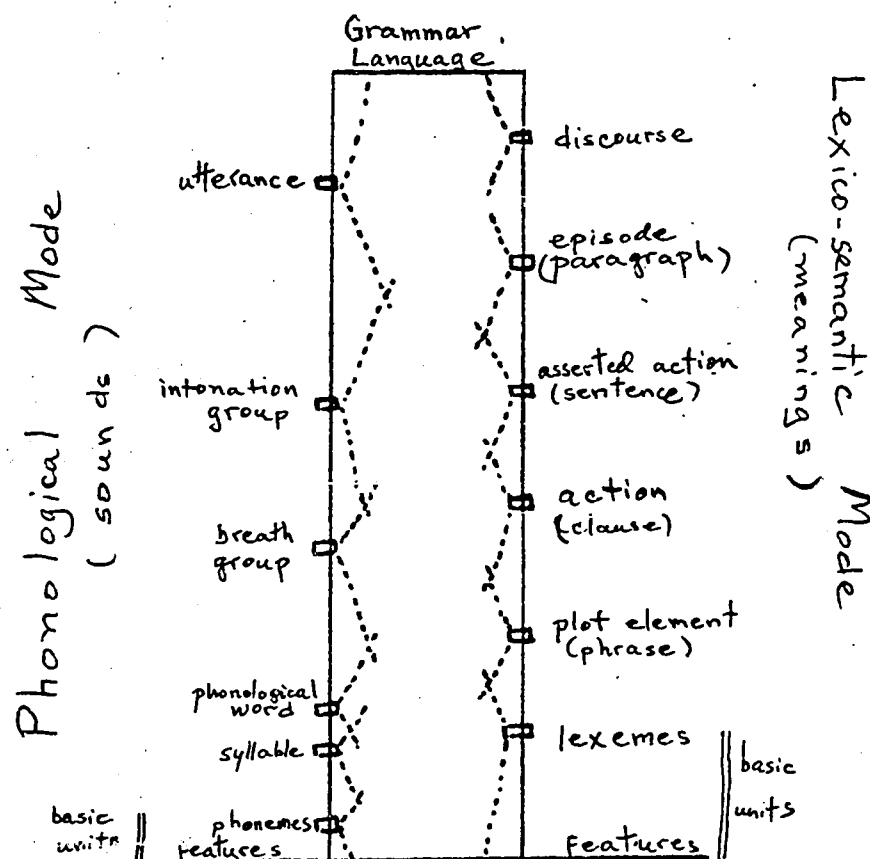 Grammar
Language
Phonological Mode
(sounds)
utterance
intonation
group
breath
group
phonological
word
syllable
phonemes
features
basic
units
discourse
episode
(paragraph)
asserted action
(sentence)
action
(clause)
plot element
(phrase)
lexemes
Features
basic
units
Lexico-semantic Mode
(meanings)